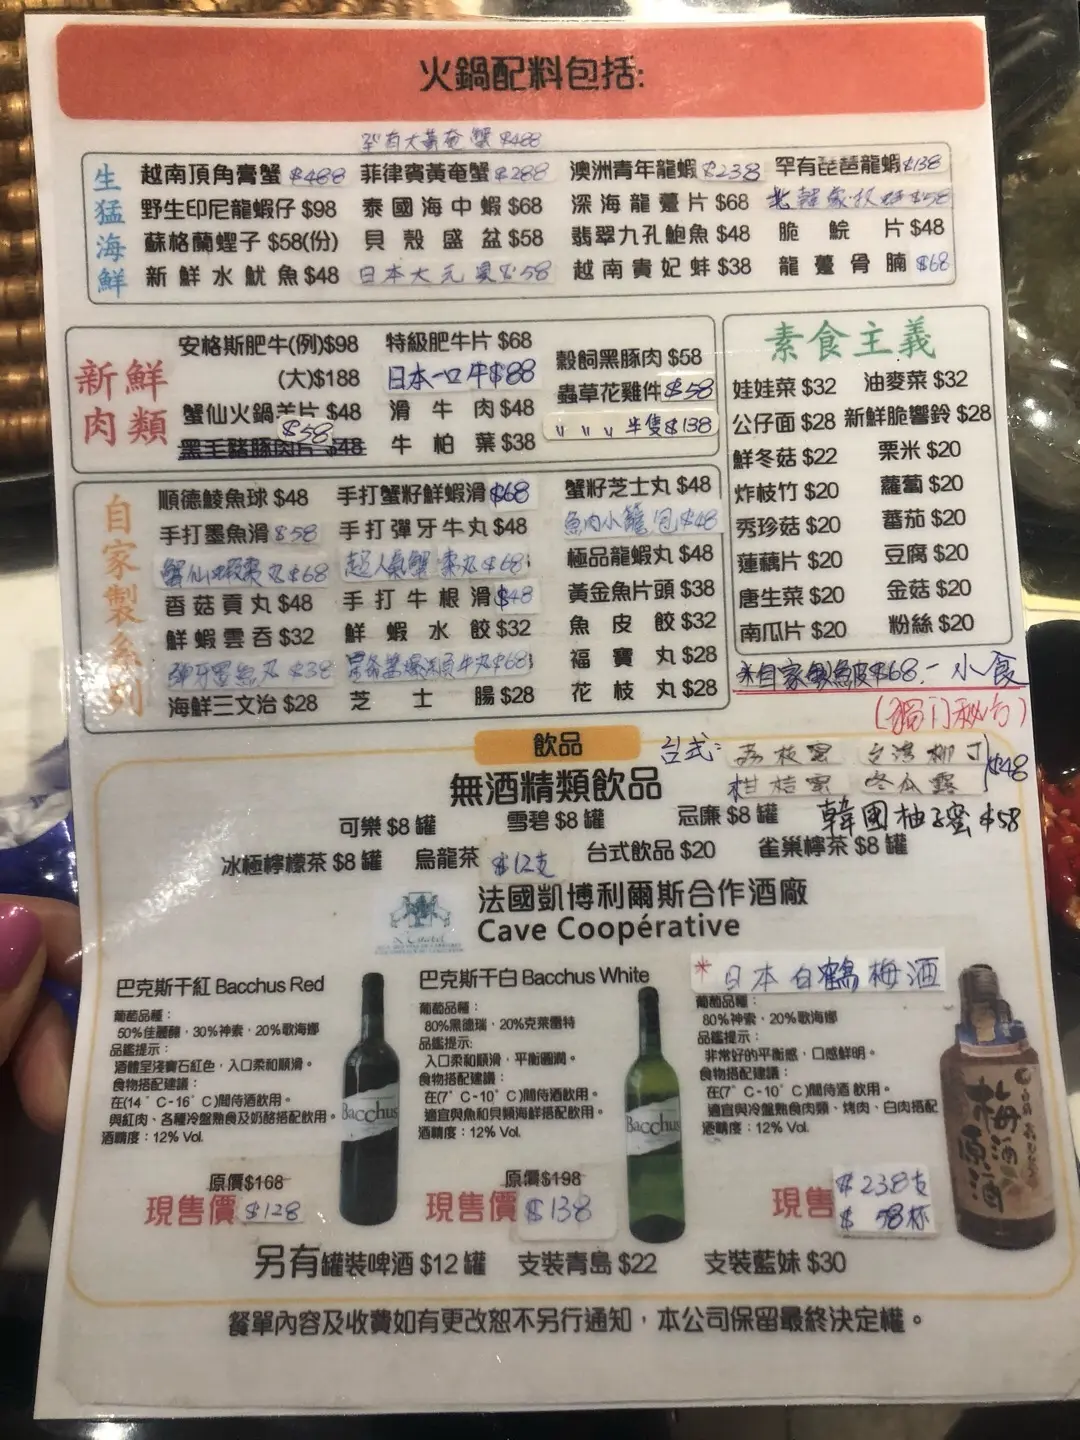 火鍋配料包括:
罕有大黃奄蟹 $488
生猛海鮮
越南頂角膏蟹 $488 菲律賓黃奄蟹 $288 澳洲青年龍蝦 $238 罕有琵琶龍蝦 $138
野生印尼龍蝦仔 $98 泰國海中蝦 $68 深海龍躉片 $68 $58
蘇格蘭蟶子 $58(份) 貝殼盛盆 $58 翡翠九孔鮑魚 $48 脆鯇片 $48
新鮮水魷魚 $48 日本大元貝 $58 越南貴妃蚌 $38 龍躉骨腩 $68
新鮮肉類
安格斯肥牛(例)$98 特級肥牛片 $68 穀飼黑豚肉 $58
(大)$188 日本一口牛 $88 蟲草花雞件 $58
蟹仙火鍋羊片 $48 滑牛肉 $48 〃 〃 〃 半隻 $138
$58
黑毛豬豚肉片 $48 牛柏葉 $38
素食主義
娃娃菜 $32 油麥菜 $32
公仔面 $28 新鮮脆響鈴 $28
鮮冬菇 $22 栗米 $20
炸枝竹 $20 蘿蔔 $20
秀珍菇 $20 蕃茄 $20
蓮藕片 $20 豆腐 $20
唐生菜 $20 金菇 $20
南瓜片 $20 粉絲 $20
自家製系列
順德鯪魚球 $48 手打蟹籽鮮蝦滑 $68 蟹籽芝士丸 $48
手打墨魚滑 $58 手打彈牙牛丸 $48 魚肉小籠包 $48
蟹仙蝦棗丸 $68 超人氣蟹棗丸 $68 極品龍蝦丸 $48
香菇貢丸 $48 手打牛根滑 $48 黃金魚片頭 $38
鮮蝦雲吞 $32 鮮蝦水餃 $32 魚皮餃 $32
彈牙墨魚丸 $38 瀨尿牛丸 $68 福寶丸 $28
海鮮三文治 $28 芝士腸 $28 花枝丸 $28
*自家製魚皮 $68 - 小食
(獨門秘方)
飲品
台式: 荔枝蜜 台灣柳丁
柑桔蜜 冬瓜露 $48
無酒精類飲品
可樂 $8 罐 雪碧 $8 罐 忌廉 $8 罐 韓國柚子蜜 $58
冰極檸檬茶 $8 罐 烏龍茶 $12支 台式飲品 $20 雀巢檸茶 $8 罐
法國凱博利爾斯合作酒廠
Cave Coopérative
巴克斯干紅 Bacchus Red
葡萄品種：
50%佳麗釀，30%神索，20%歌海娜
品鑑提示：
酒體呈淺寶石紅色，入口柔和順滑。
食物搭配建議：
在(14°C-16°C)間侍酒飲用。
與紅肉、各種冷盤熟食及奶酪搭配飲用。
酒精度：12% Vol.
原價$168
現售價 $128
Bacchus
巴克斯干白 Bacchus White
葡萄品種：
80%黑德瑞，20%克萊雷特
品鑑提示:
入口柔和順滑，平衡圓潤。
食物搭配建議：
在(7°C-10°C)間侍酒飲用。
適宜與魚和貝類海鮮搭配飲用。
酒精度：12% Vol.
原價$198
現售價 $138
Bacchus
*日本白鶴梅酒
葡萄品種：
80%神索，20%歌海娜
品鑑提示：
非常好的平衡感，口感鮮明。
食物搭配建議：
在(7°C-10°C)間侍酒 飲用。
適宜與冷盤熟食肉類、烤肉、白肉搭配
酒精度：12% Vol.
現售 $238支
$58杯
梅酒原酒
另有罐裝啤酒 $12 罐 支裝青島 $22 支裝藍妹 $30
餐單內容及收費如有更改恕不另行通知，本公司保留最終決定權。